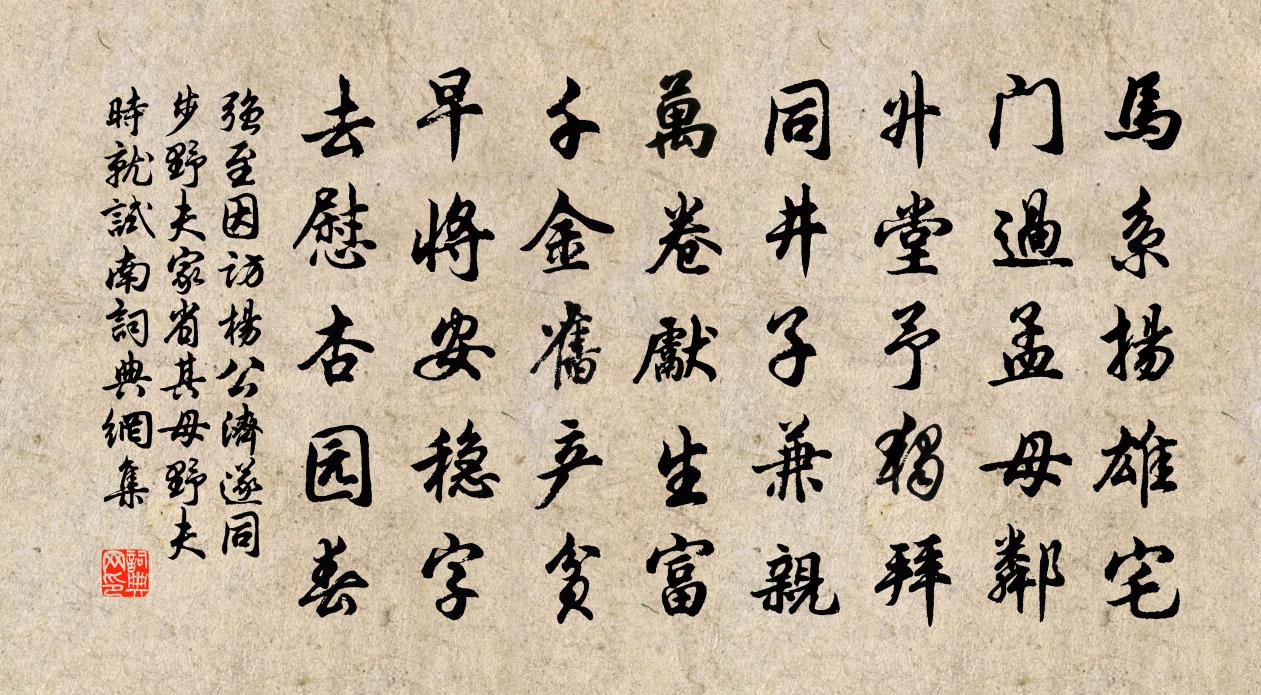 馬系揚雄宅
门過孟母鄰
升堂予獨拜
同井子兼親
萬卷獻生富
千金舊产貧
早將安穏字
去慰杏园春
强至因访楊公濟遂同
步野夫家省其母野夫
時就試南詞典網集
詞典
网印